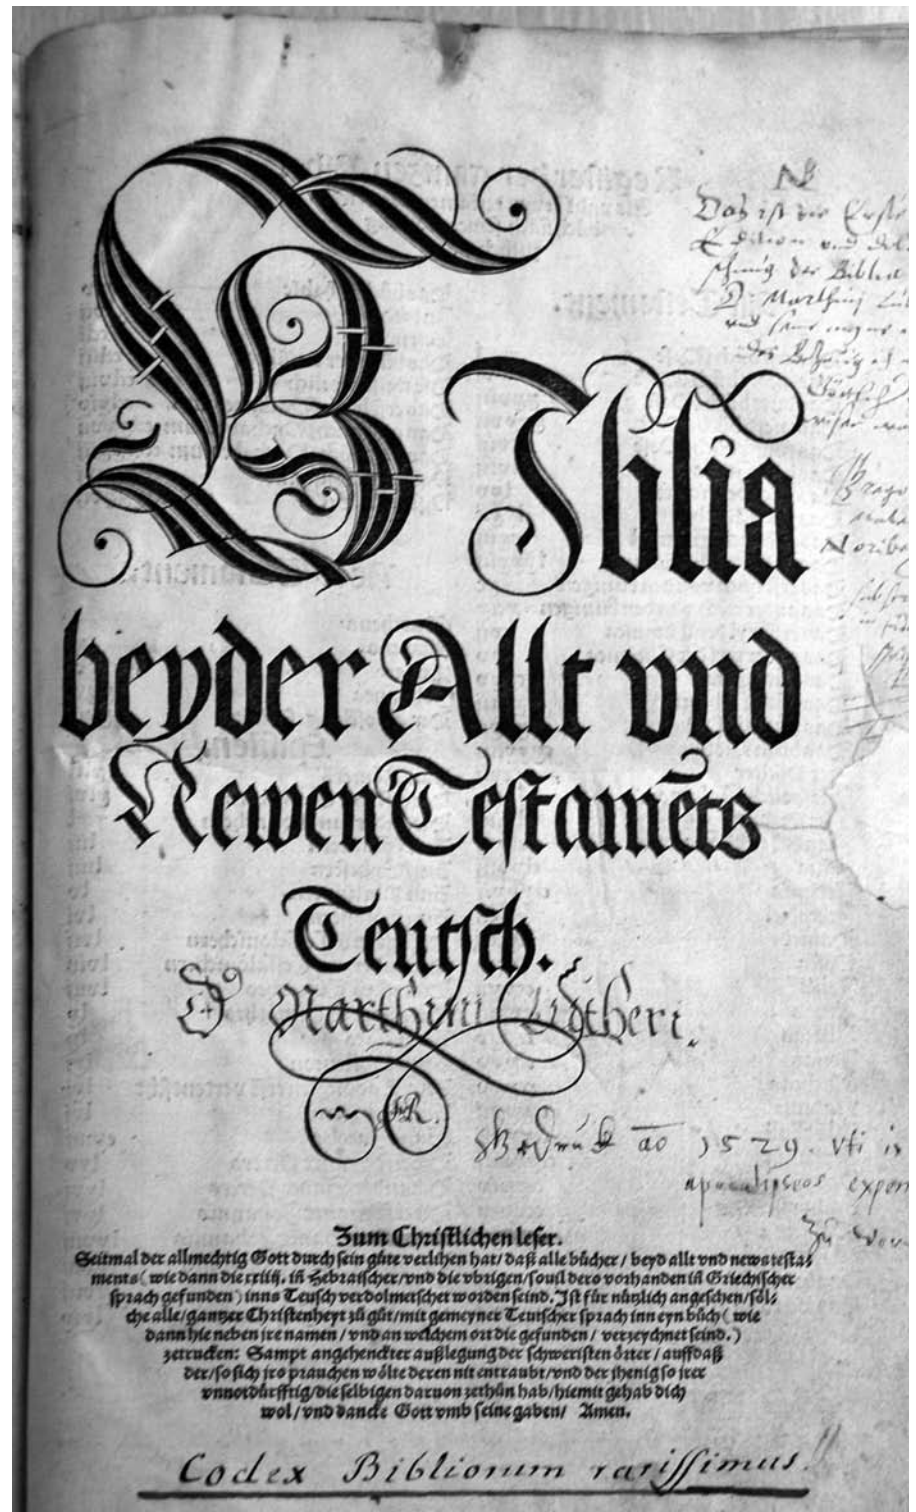 NB
Das ist die Erste
Edition und
der Biblia
D. Marthinj
und seine
Biblia
beyder Allt vnd
Newen Testamēts
Teutsch.
D Marthini Lutheri.
Gedruckt ao 1529. vti in
apocalipseos
zu
Zum Christlichen leser.
Seitmal der allmechtig Gott durch sein güte verlihen hat/ daß alle bücher/ beyd allt vnd news testa⸗
ments (wie dann die xxiiij. in Hebraischer/vnd die vbrigen/souil dero vorhanden in Griechischer
sprach gefunden) inns Teusch verdolmetschet worden seind. Ist für nützlich angesehen/söl⸗
che alle/gantzer Christenheyt zů gůt/mit gemeyner Teutscher sprach inn eyn bůch (wie
dann hie neben jre namen/vnd an welchem ort die gefunden/ verzeychnet seind.)
zetrucken: Sampt angehenckter außlegung der schweristen örter/auffdaß
der/so sich jro prauchen wölte deren nit entraubt/vnd der jhenig so jrer
vnnotdürfftig/die selbigen daruon zethůn hab/hiemit gehab dich
wol/vnd dancke Gott vmb seine gaben/ Amen.
Codex Bibliorum rarissimus!!